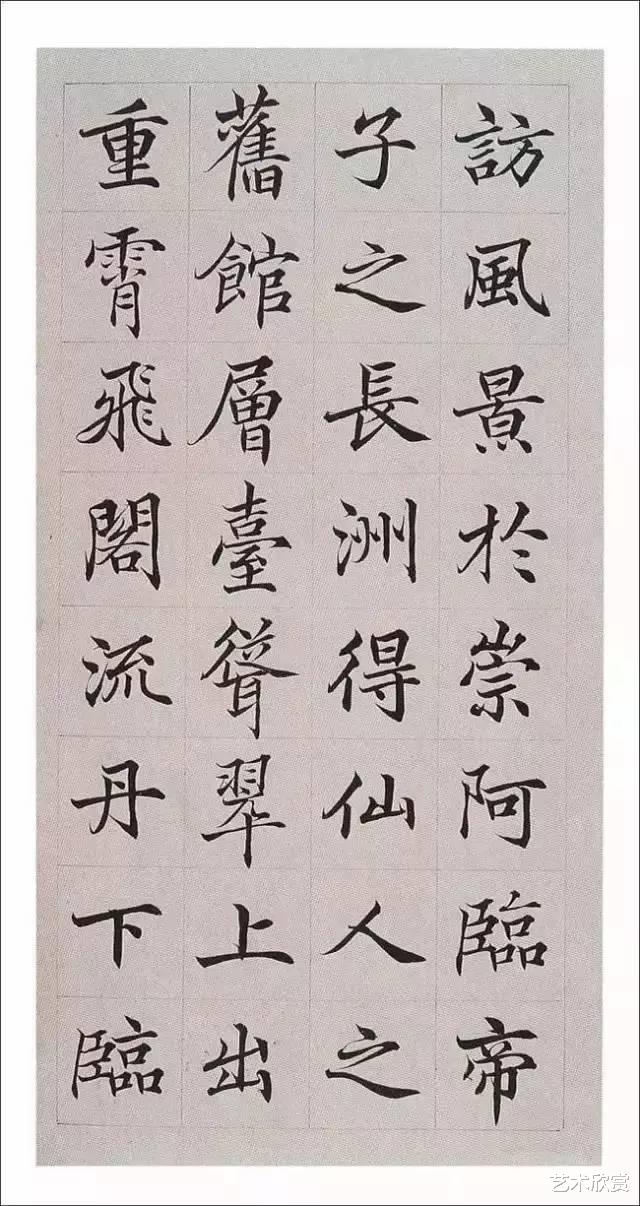 訪風景於崇阿臨帝
子之長洲得仙人之
舊館層臺聳翠上出
重霄飛閣流丹下臨
艺术欣赏